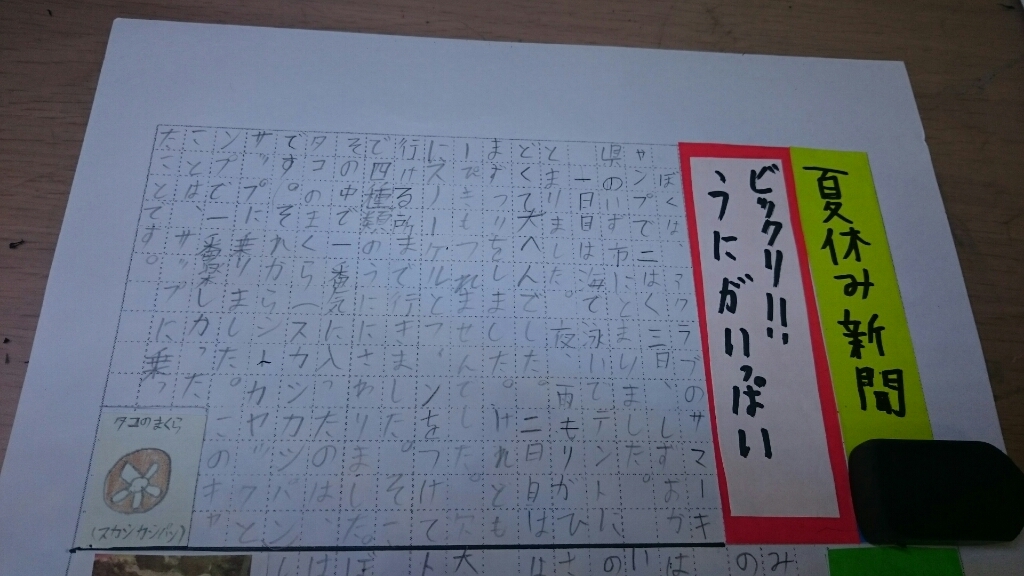 夏休み新聞
ビックリ!!
うにがいっぱい
ぼくは、アクラブのサマーキ
ャンプで二はく三日、しずおか
県のいず市にとまりました。
一日目は海で泳いでテントに
とまりました。夜、雨もりがひ
どくて大へんでした。二日目は
まずつりをしました。けれども
一ぴきもつれませんでした。次
にスノーケルとフィンをつけて
行ける所まで行きました。そこ
で四種類のうににさわりました。
その中で一番気に入ったのは、
タコのまくら(スカシカシパン)
です。それからシーカヤックと
サップに乗りました。このキャ
ンプで一番楽しかった
ことは、サップに乗っ
たことです。
タコのまくら
(スカシカシパン)